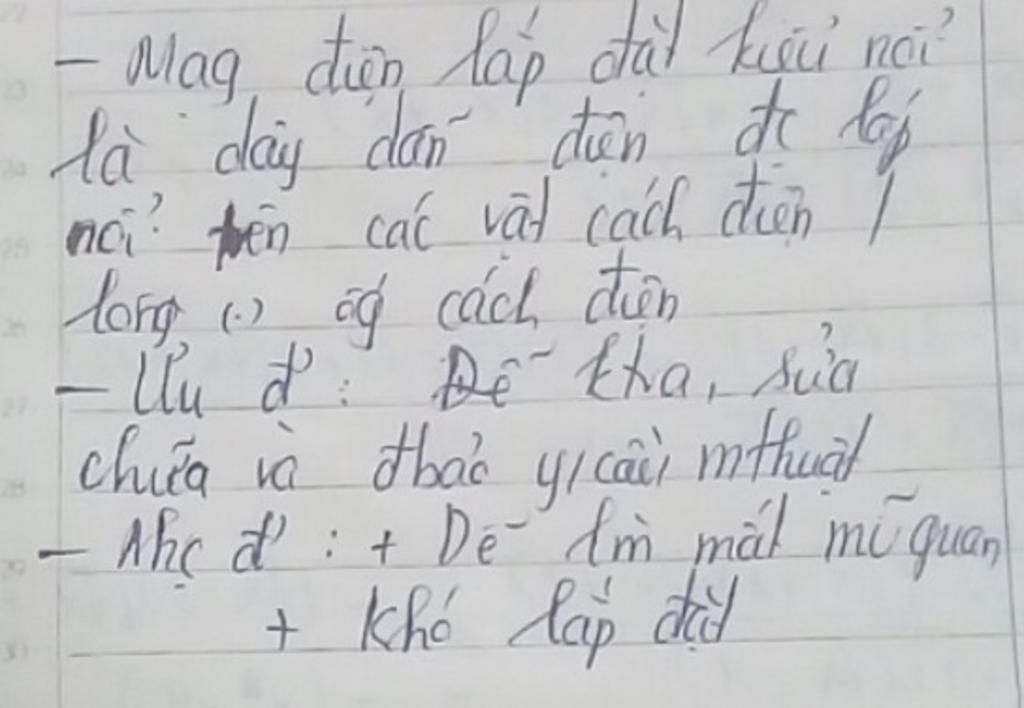 - Mạg điện lắp đặt kiểu nổi
là dây dẫn điện đc lắp
nổi trên các vật cách điện /
lorg (.) ốg cách điện
- Ưu đ' : Dễ ktra, sửa
chữa và đbảo y/cầu mthuật
- Nhc đ' : + Dễ lm mất mĩ quan
+ Khó lắp đặt